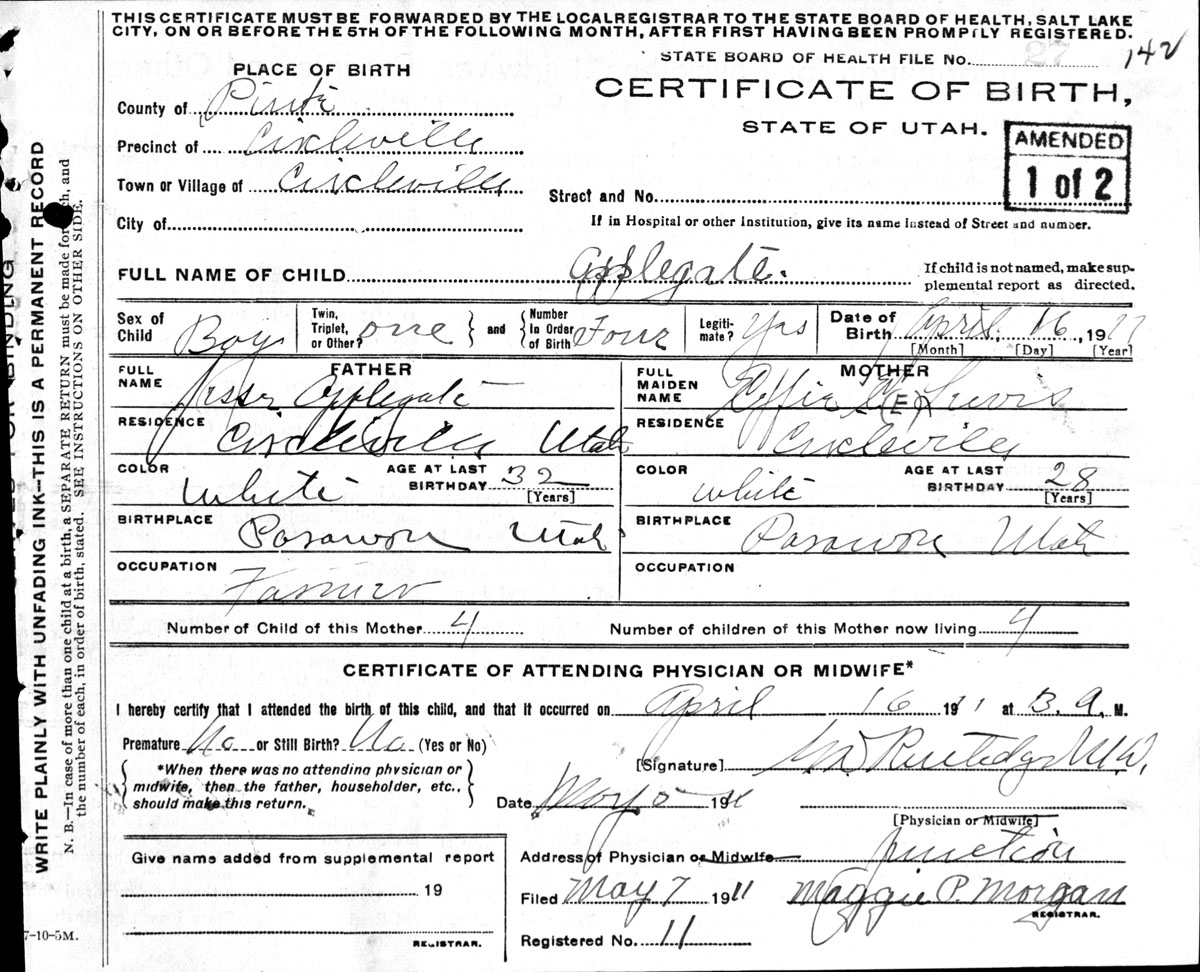 THIS CERTIFICATE MUST BE FORWARDED BY THE LOCAL REGISTRAR TO THE STATE BOARD OF HEALTH, SALT LAKE
CITY, ON OR BEFORE THE 5TH OF THE FOLLOWING MONTH, AFTER FIRST HAVING BEEN PROMPTLY REGISTERED.
STATE BOARD OF HEALTH FILE No. 27 142
PLACE OF BIRTH
CERTIFICATE OF BIRTH,
STATE OF UTAH.
AMENDED
1 of 2
County of Piute
Precinct of Circleville
Town or Village of Circleville
Street and No.
City of
If in Hospital or other Institution, give its name instead of Street and number.
FULL NAME OF CHILD Applegate.
If child is not named, make sup-
plemental report as directed.
Sex of Child Boy
Twin, Triplet, or Other? one and Number In Order of Birth Four
Legiti-mate? Yes
Date of Birth April, 16, 1911
[Month] [Day] [Year]
FATHER
FULL NAME Applegate
RESIDENCE Circleville Utah
COLOR White AGE AT LAST BIRTHDAY 32 [Years]
BIRTHPLACE Parowon Utah
OCCUPATION Farmer
MOTHER
FULL MAIDEN NAME Effie (E)
RESIDENCE Circleville
COLOR White AGE AT LAST BIRTHDAY 28 [Years]
BIRTHPLACE Parowon Utah
OCCUPATION
Number of Child of this Mother 4 Number of children of this Mother now living 4
CERTIFICATE OF ATTENDING PHYSICIAN OR MIDWIFE*
I hereby certify that I attended the birth of this child, and that it occurred on April 16 1911 at 3. A. M.
Premature No or Still Birth? No (Yes or No)
*When there was no attending physician or
midwife, then the father, householder, etc.,
should make this return.
[Signature]
Date May 5 1911
[Physician or Midwife]
Give name added from supplemental report
19
REGISTRAR.
Address of Physician or Midwife Junction
Filed May 7 1911 Maggie P. Morgan
REGISTRAR.
Registered No. 11
7-10-5M.
WRITE PLAINLY WITH UNFADING INK—THIS IS A PERMANENT RECORD
N. B.—In case of more than one child at a birth, a SEPARATE RETURN must be made for each, and
the number of each, in order of birth, stated. SEE INSTRUCTIONS ON OTHER SIDE.